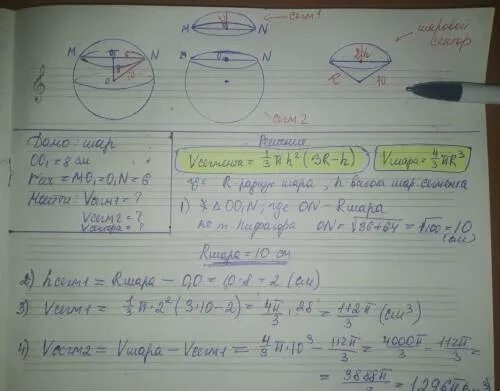 сегм1
M N
M N
O₁
R
10
сегм2
2 h
R 10
шаровой сектор
Дано: шар
OO₁ = 8 см
r сеч = MO₁ = O₁N = 6
Найти: Vсегм1 = ?
Vсегм2 = ?
Vсектора = ?
Решение
Vсегмента = 1/3 π h² (3R - h)
Vшара = 4/3 πR³
где R - радиус шара, h - высота шар. сегмента
1) △ OO₁N, где ON - Rшара
по т. Пифагора ON = √36+64 = √100 = 10 (см)
Rшара = 10 см
2) hсегм1 = Rшара - O₁O = 10 - 8 = 2 (см)
3) Vсегм1 = 1/3 π · 2² (3·10 - 2) = 4π/3 · 28 = 112π/3 (см³)
4) Vсегм2 = Vшара - Vсегм1 = 4/3 π·10³ - 112π/3 = 4000π/3 - 112π/3 =
= 3888π/3 = 1296π см³